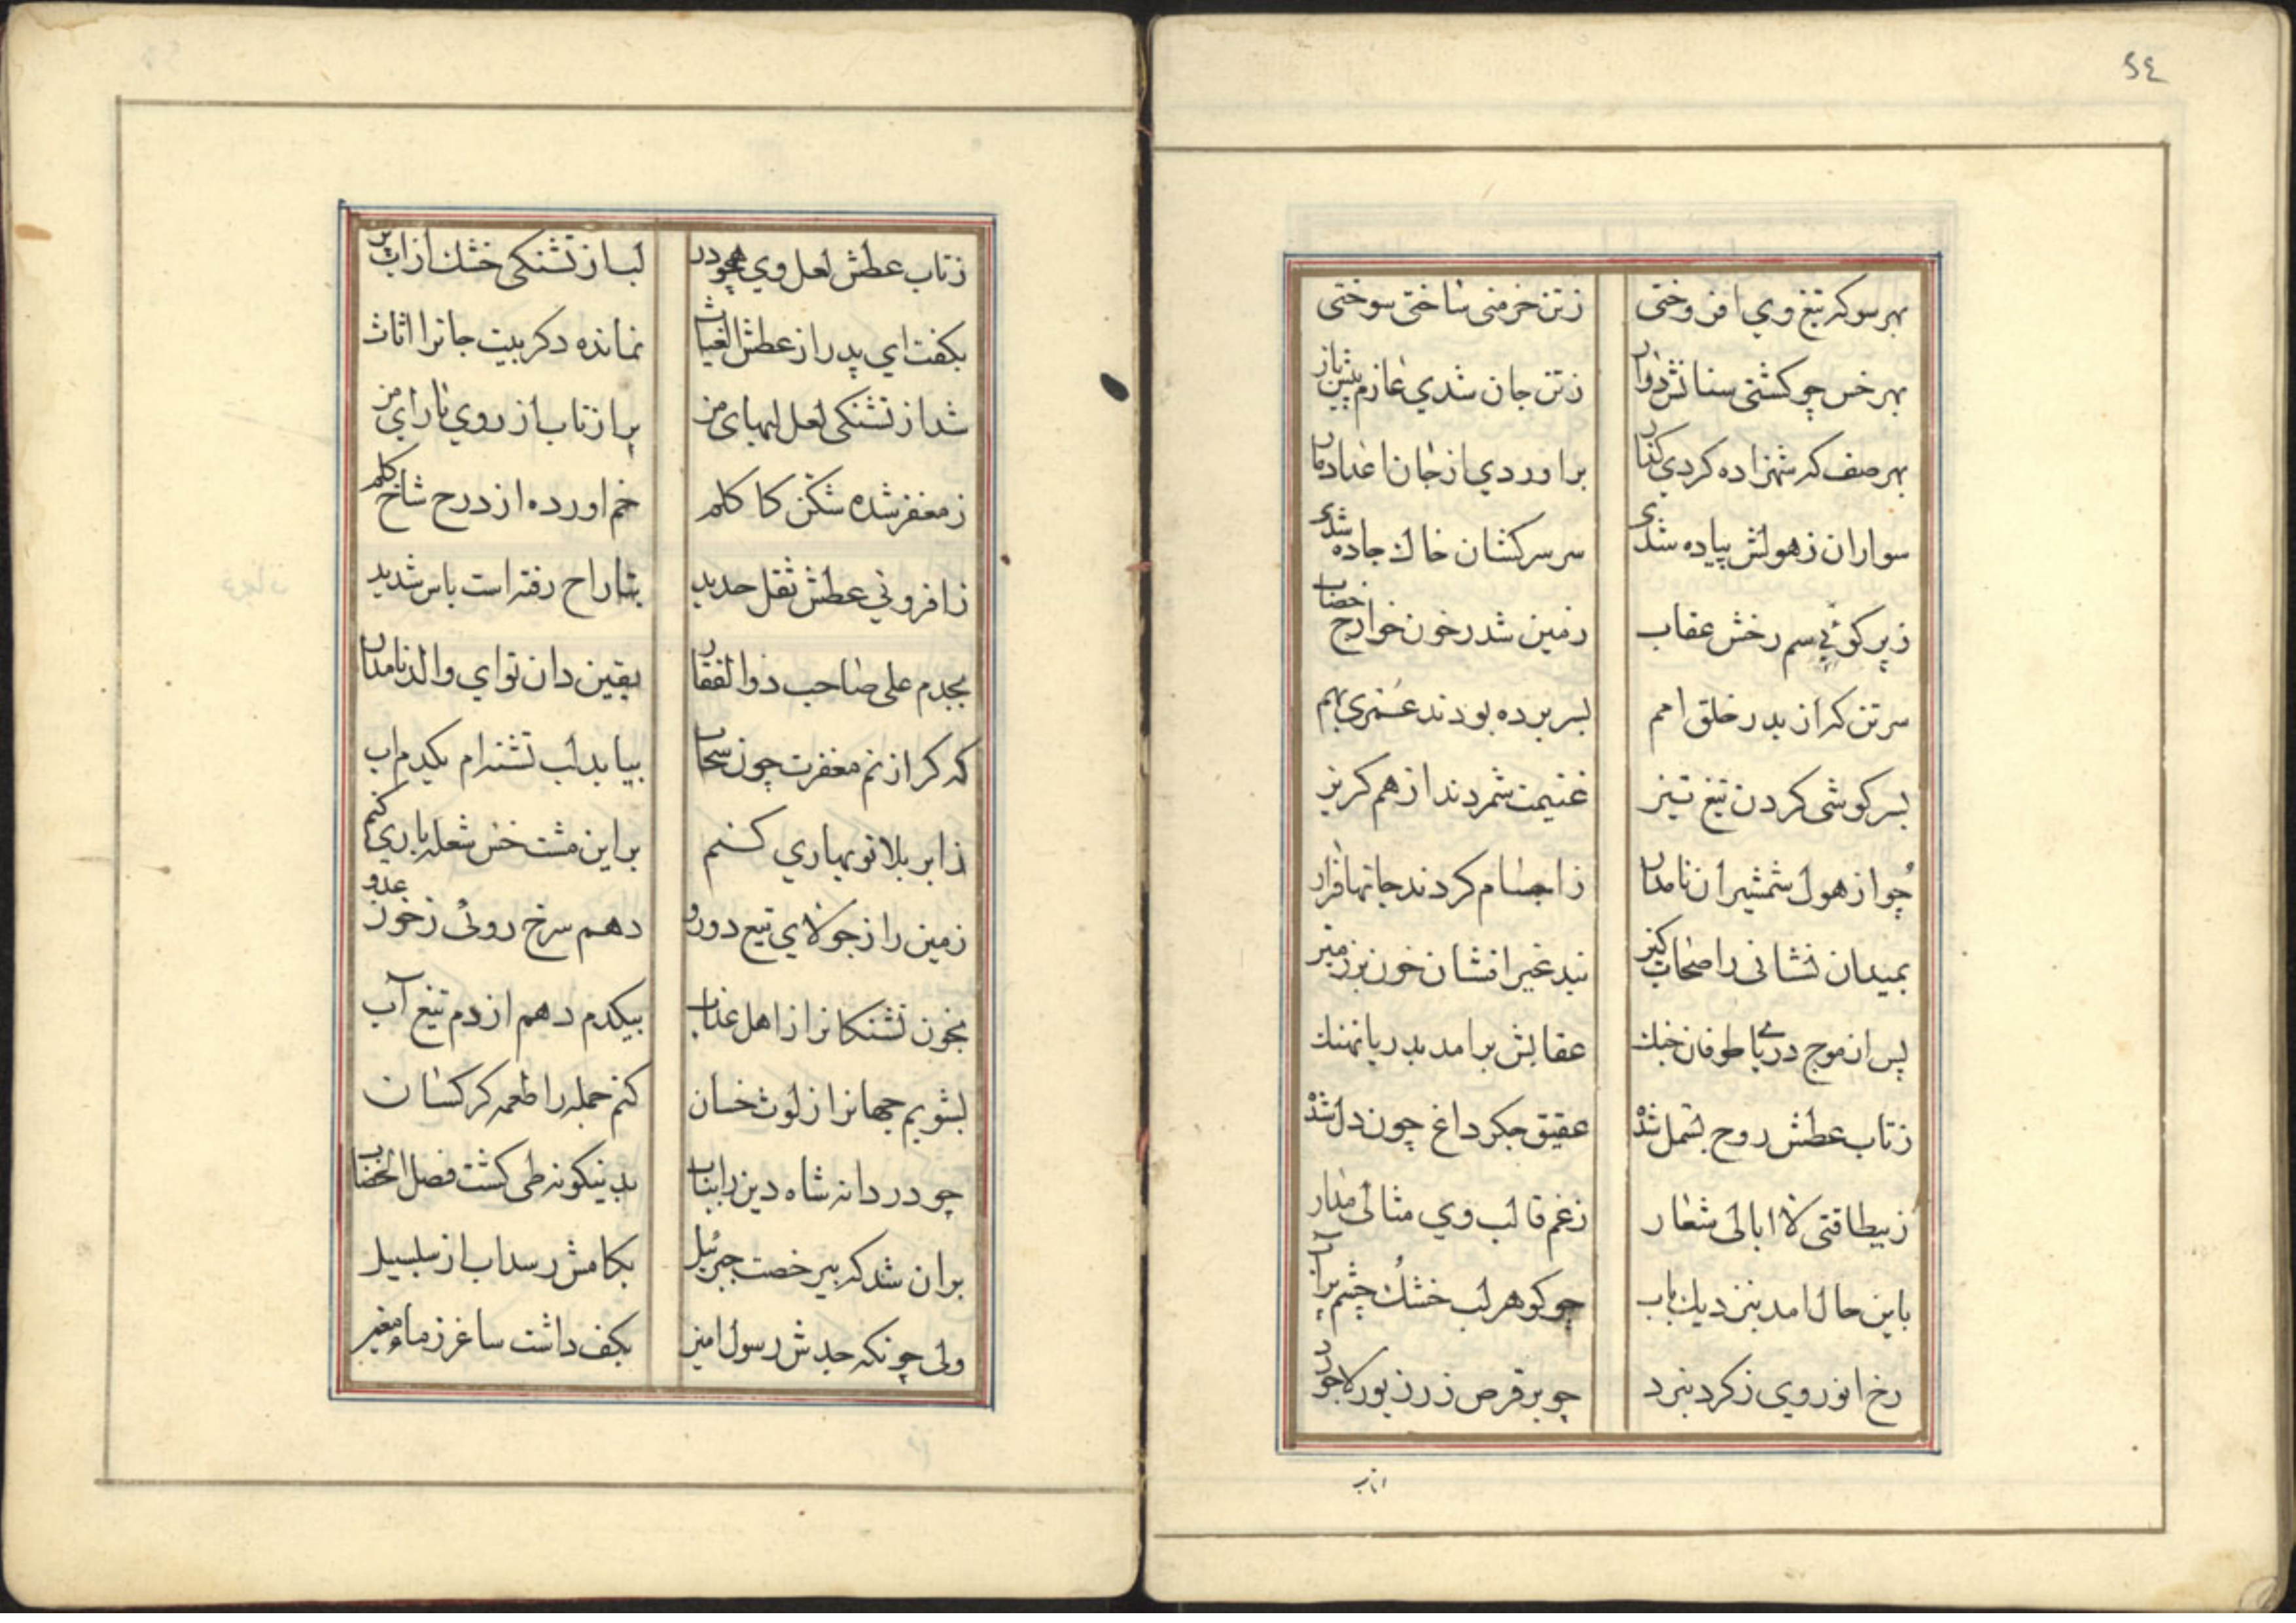 ٤٥
بهر سو که تیغ وی افروختی زتن خرمنی ساختی سوختی
بهر خس چو کشتی سنانش دوان زتن جان شدی عازم
بهر صف که شهزاده کردی کذار براوردی از جان اعدا دمار
سواران زهولش پیاده شدی سر سرکشان خاك جاده شدی
زپر کوئی سم رخش عقاب زمین شد زخون خوارج خضاب
سر تن که از بدر خلق امم بسر برده بودند عمری بهم
بسر کوشی کردن تیغ تیز غنیمت شمردند از هم کریز
چو از هول شمشیر ان نامدار ز اجسام کردند جانها فرار
بمیدان نشانی را صحاب کین نبد غیر افشان خون بر زمین
پس از موج دریای طوفان جنك عقابش برامد بدریا نهنك
زتاب عطش روح بسمل شده عقیق جکر داغ چون دل شده
زبیطاقتی لا ابالی شعار زغم قالب وی مثالی مدار
باین حال امد بنزدیك باب چو کوهر لب خشك چشم پر آب
رخ انور وی زکرد نبرد چو بر قرص زر زیور لاجورد
زتاب
زتاب عطش لعل وی همچو در لب از تشنکی خشك از اب پر
بکفت ای پدر از عطش الغیاث نمانده دکر بیت جانرا اثاث
شد از تشنکی لعل لبهای من پر از تاب از روی تا رای من
زمغفر شده شکن کا کلم خم اورده از درح شاخ کلم
زافزونی عطش ثقل حدید بتاراح رفته است باس شدید
بجدم علی صاحب ذوالفقار یقین دان تو ای والد نامدار
که کر از نم مغفرت چون سحاب بیابد لب تشنه ام یکدم اب
ز ابر بلا نوبهاری کنم بر این مشت خس شعله باری کنم
زمین را زجولای تیع دورو دهم سرخ روئی زخون عدو
بخون تشنکانرا ز اهل عذاب بیکدم دهم از دم تیغ آب
بشویم جهانرا ز لوث خسان کنم جمله را طعمه کرکسان
چو دردانه شاه دین را بباب بدینکونه طی کشت فصل الخطاب
بران شد که بیرخصت جبرئیل بکامش رسد اب از سلسبیل
ولی چونکه جدش رسول امین بکف داشت ساغر زماء معین